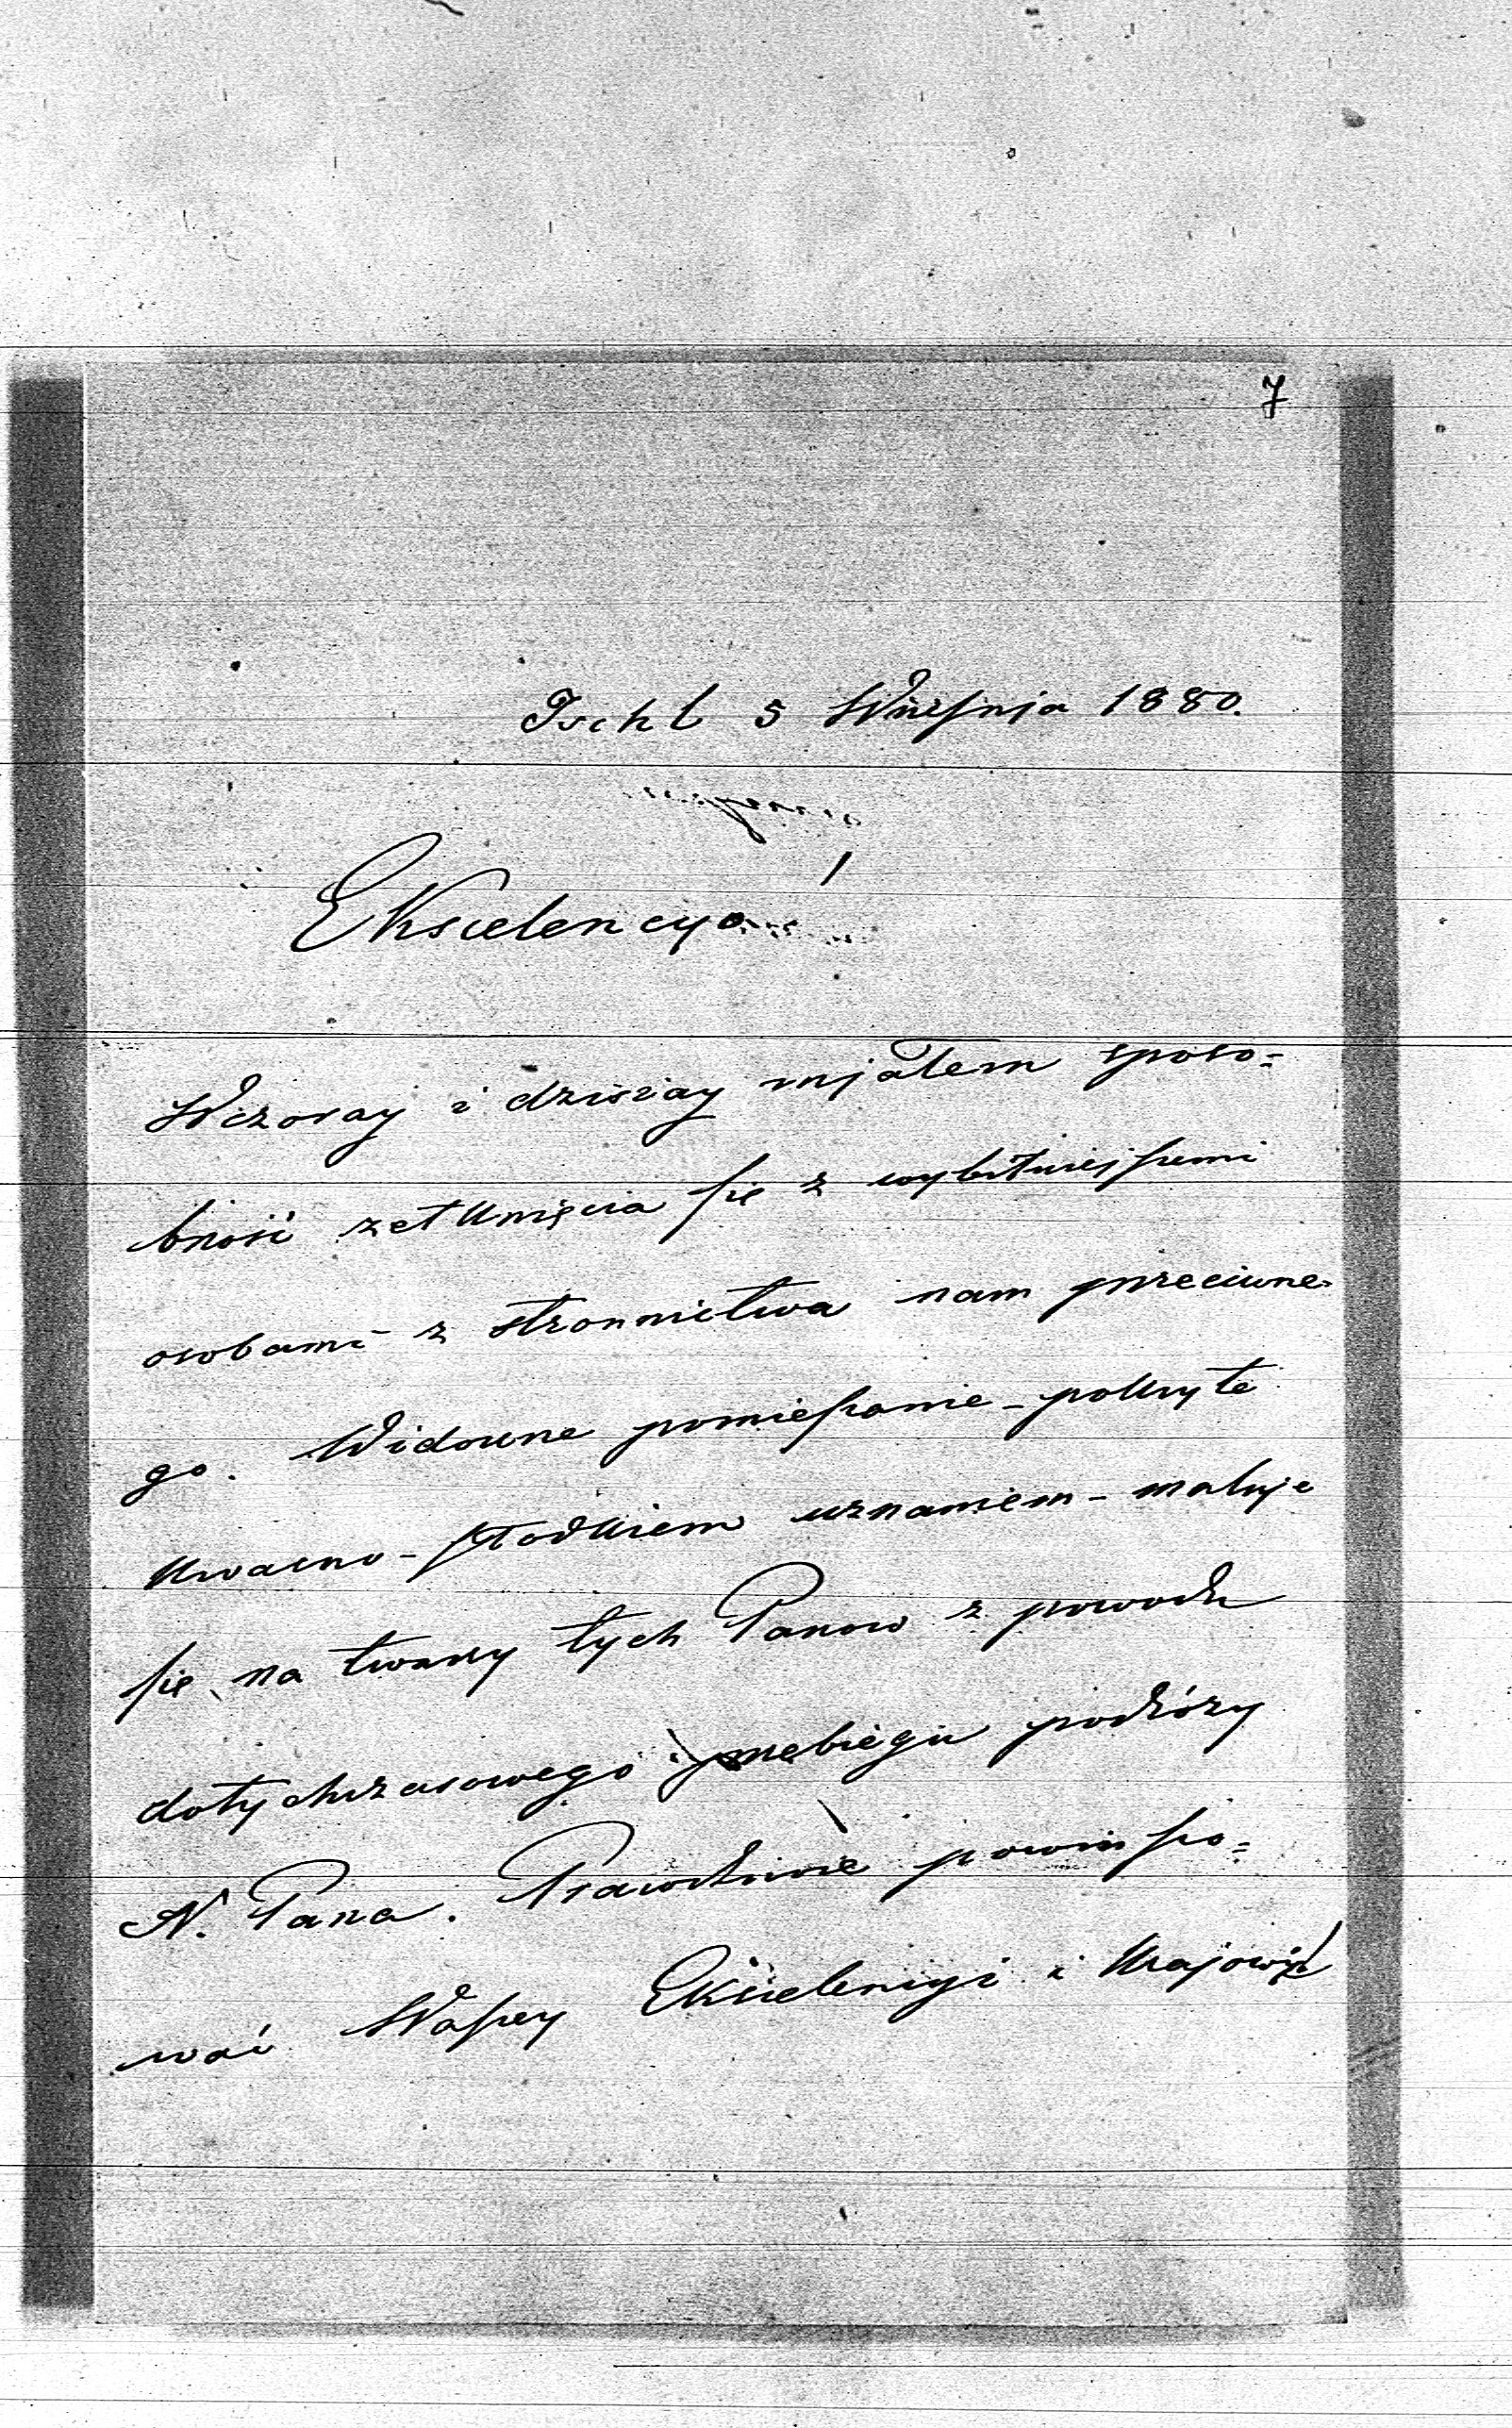 7
Ischl 5 Września 1880.
Ekscelencyo!
Wczoray i dzisiay mjałem sposo=
bność zetknięcia się z wybitniejszemi
osobami z stronnictwa nam przeciwne-
go. Widoczne pomieszanie - pokryte
kwaśno - słodkiem uznaniem - maluje
się na twarzy tych Panow z powodu
dotychczasowego przebiegu podróży
N. Pana. Prawdziwie powinszo=
wać Waszey Ekscelencyi i krajowi